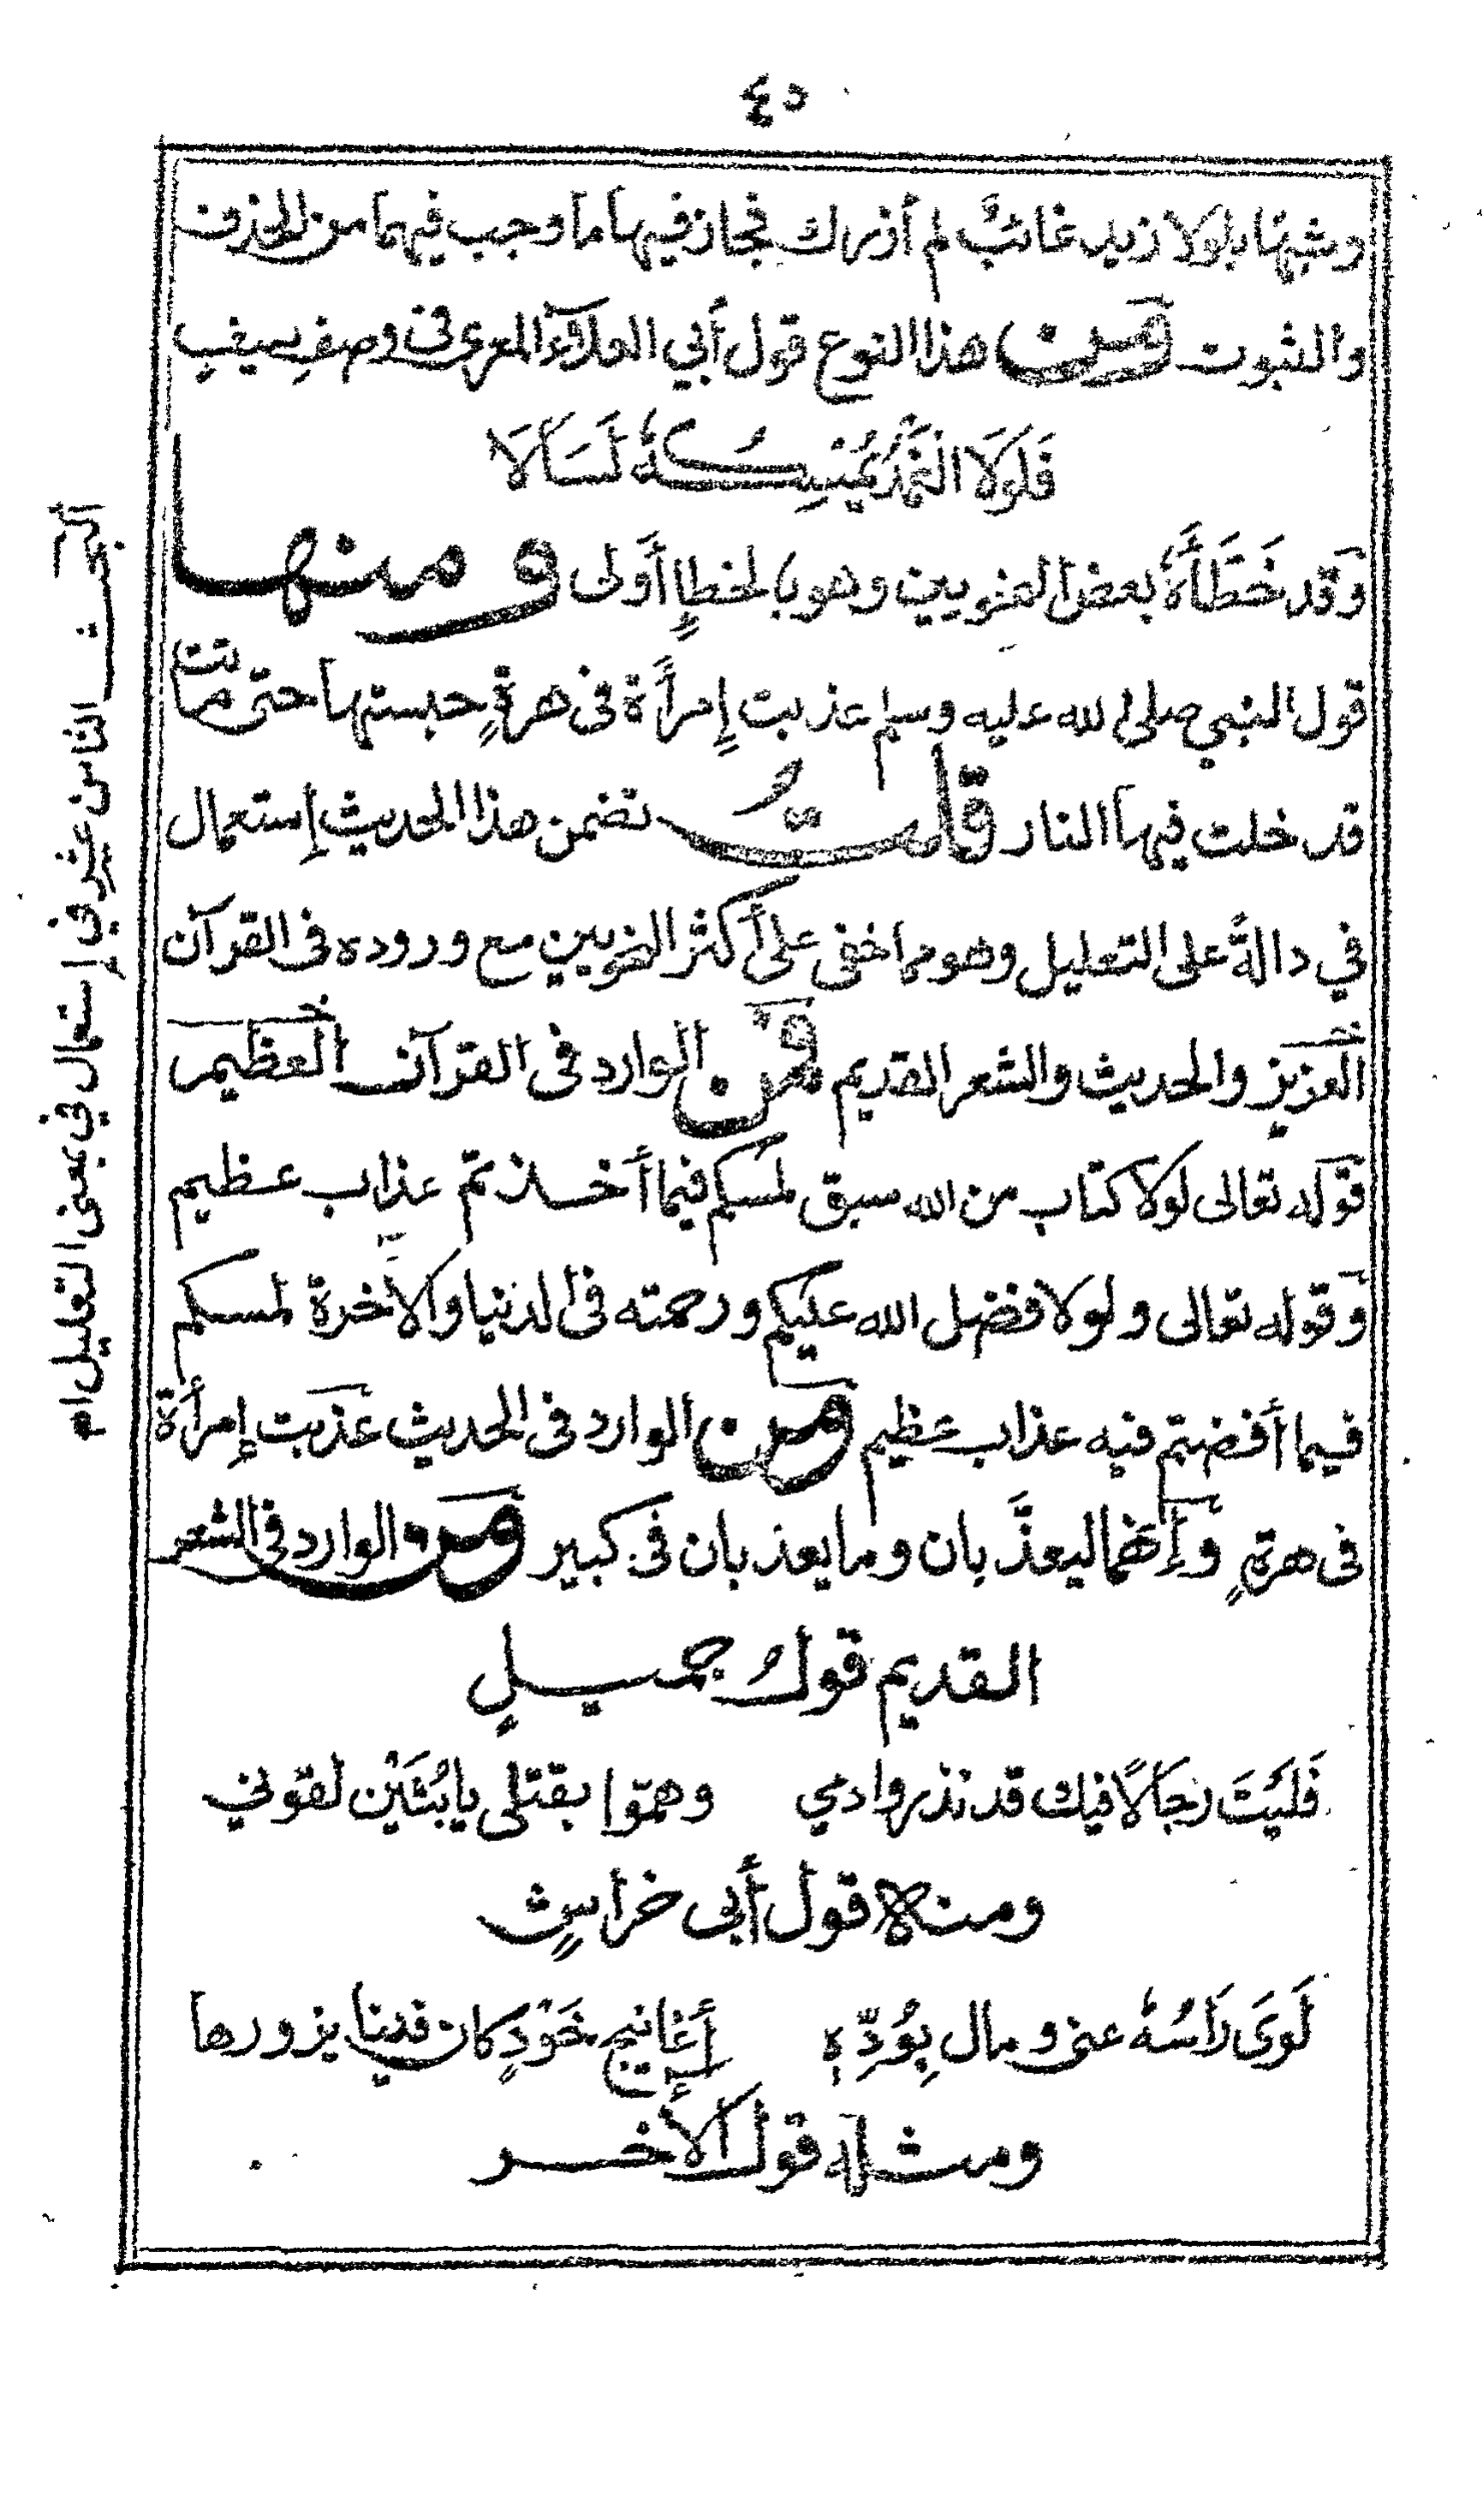 ٤٥
وشبهها بلولا زيد غائبٌ لم أزرك فجاز فيها ما وجب فيهما من الحذف
والثبوت ومن هذا النوع قول أبي العلاء المعرى فى وصفِ سيفٍ
فَلَوْلَا الغِمْدُ يُمْسِكُهُ لَسَالَا
وقد خَطَّأَهُ بعض النحويين وهو بالخطإِ أَولى ومنها
قول النبي صلى الله عليه وسلم عذبت إِمرأَة فى هرةٍ حبستها حتى ماتت
فدخلت فيها النار قلتُ تضمن هذا الحديث إِستعمال
في دالةً على التعليل وهو مما خفى على أَكثر النحويين مع وروده فى القرآن
العزيز والحديث والشعر القديم فمن الوارد فى القرآن العظيم
قوله تعالى لولا كتاب من الله سبق لمسكم فيما أخذتم عذاب عظيم
وقوله تعالى ولولا فضل الله عليكم ورحمته فى الدنيا والآخرة لمسكم
فيما أفضتم فيه عذاب عظيم ومن الوارد فى الحديث عذبت إمرأة
فى هرةٍ وإِنهما ليعذَّبان وما يعذبان فى كبير ومن الوارد فى الشعر
القديم قولُ جميلٍ
فَلَيْتَ رِجَالًا فيك قد نذروا دمي وهمّوا بقتلى يا بُثَيْن لقوني
ومنه قول أبى خراشٍ
لَوَى رَأسُهُ عنى ومال بِوُدِّهِ أَغانيج خَوْدٍ كان فينا يزورها
ومثله قول الآخر
البحث الثامن عشر في إستعمال في بمعنى التعليل ام